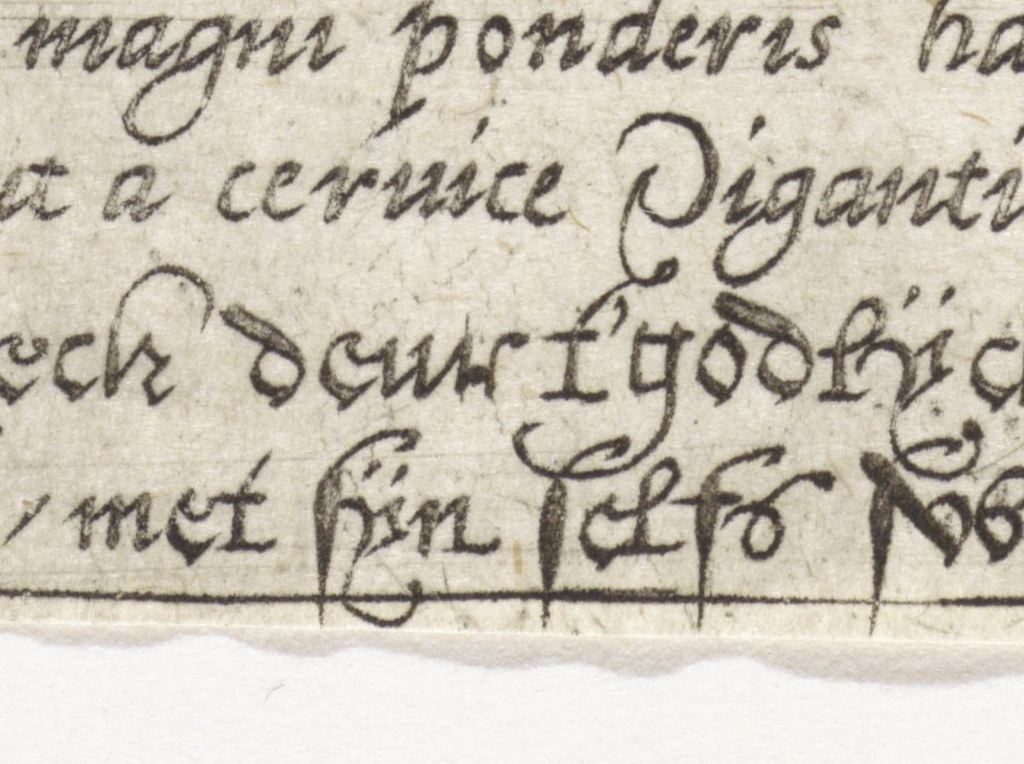 magni ponderis ha
at a ceruice Diganti
eck deur t'godlijck
met sijn selfs